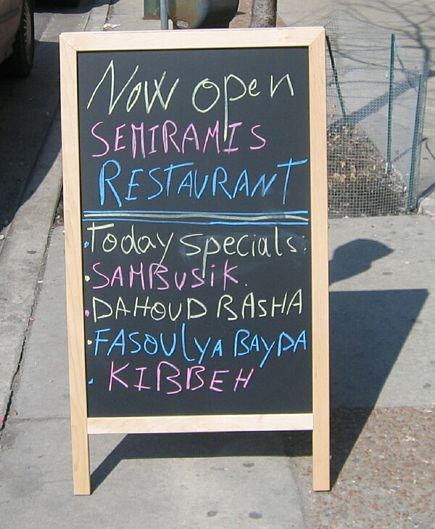 Now open
SEMIRAMIS
RESTAURANT
· Today specials:
· SAMBUSIK.
· DAHOUD BASHA
· FASOULYA BAYDA
· KIBBEH